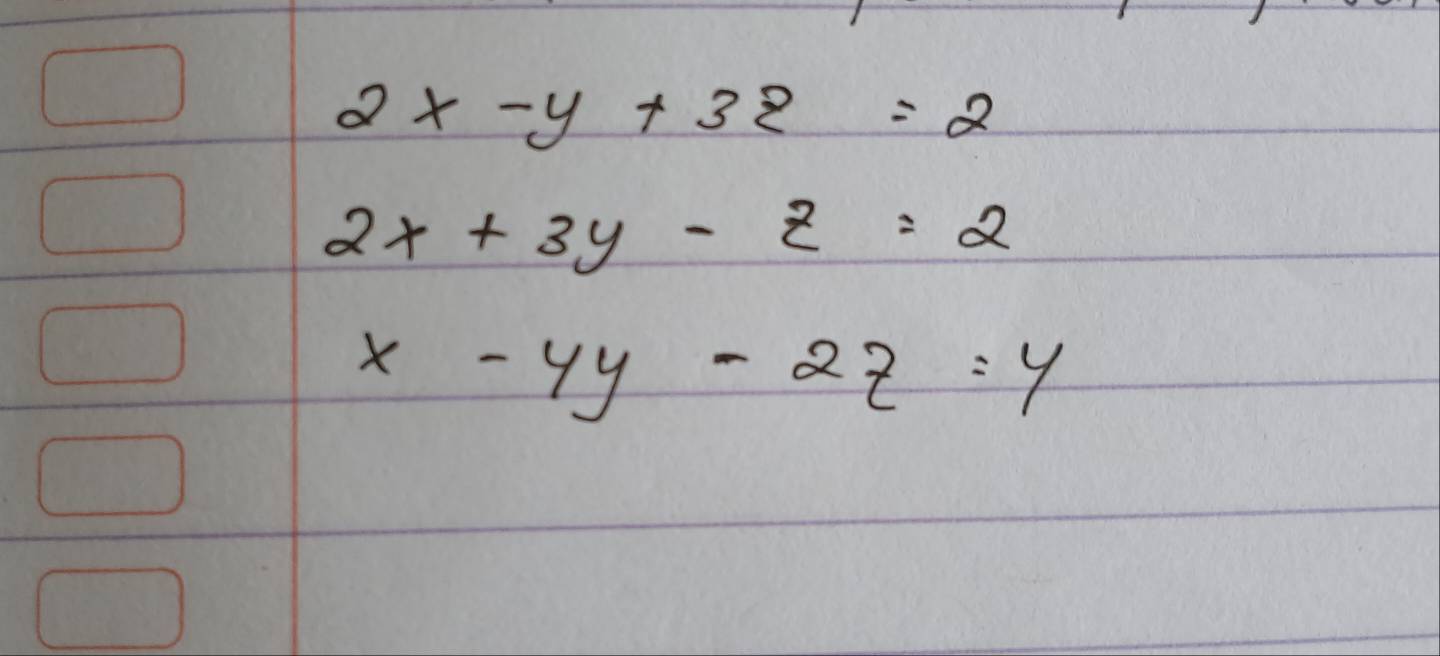 2x - y + 3z = 2
2x + 3y - z = 2
x - 4y - 2z = 4